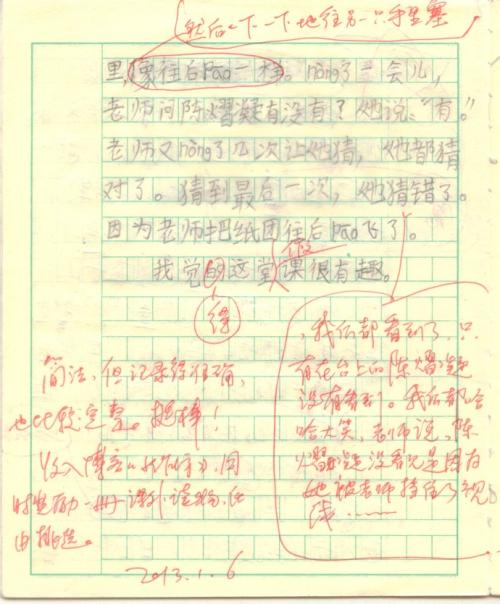 然后一下一下地往另一只手里塞
里,像往后pao一样。nòng了一会儿,
老师问陈熠凝有没有?她说:“有。”
老师又nòng了几次让她猜,她都猜
对了。猜到最后一次,她猜错了。
因为老师把纸团往后pao飞了。
微
我觉的这堂课很有趣。
得
简洁,但记录得准确,
也比较完整。挺棒!
收入博客《我的》,同
时奖励一册课外读物,任
由挑选。
2013.1.6
,我们都看到了,只
有在台上的陈熠凝
没有看到。我们都哈
哈大笑,老师说,陈
熠凝没看见是因为
她被老师挡住了视
线……